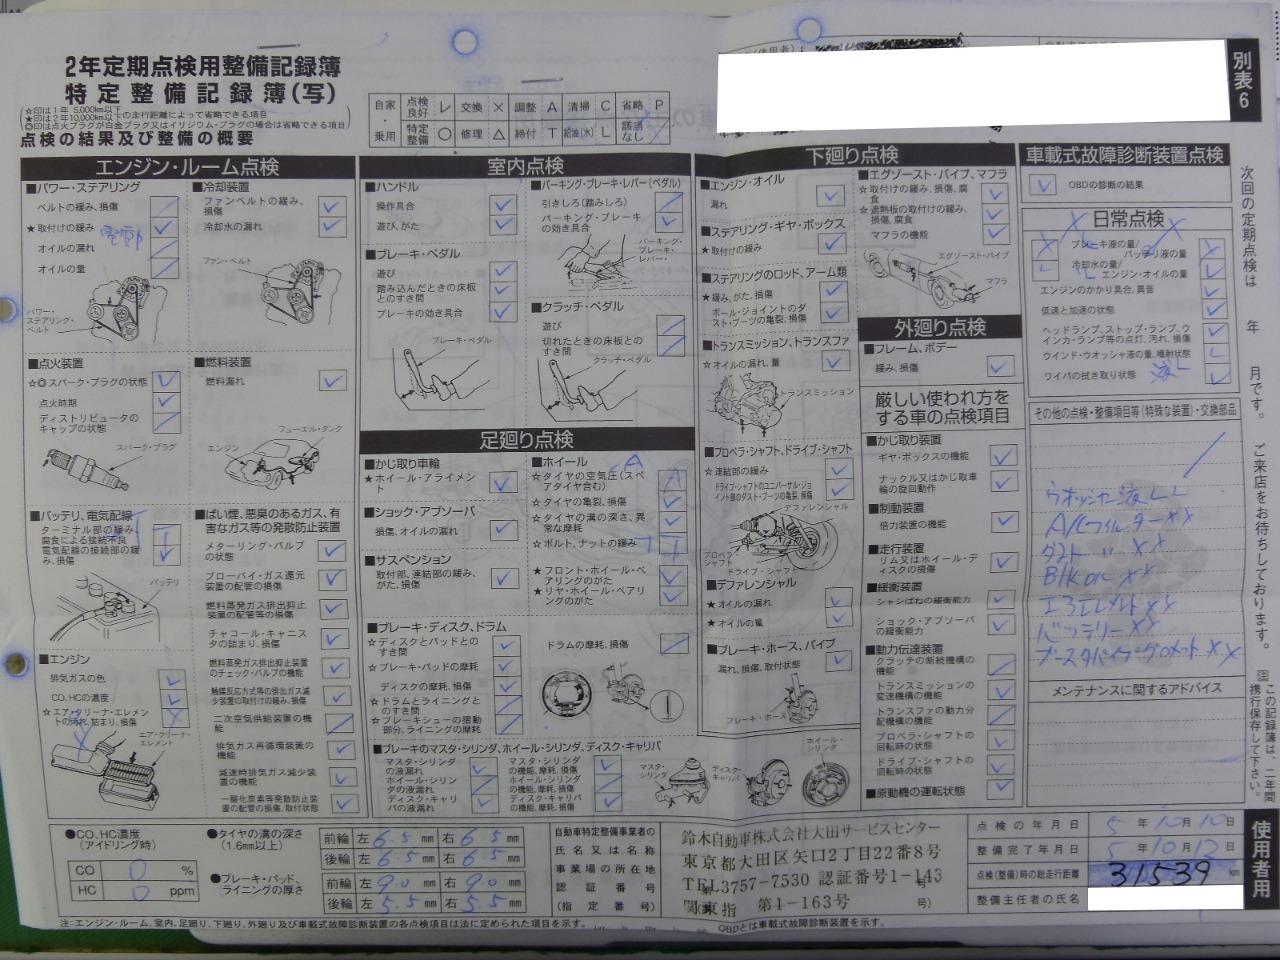 2年定期点検用整備記録簿
特定整備記録簿(写)
(☆印は1年 5,000km以下
★印は2年10,000km以下の走行距離によって省略できる項目
◎印は点火プラグが白金プラグ又はイリジウム・プラグの場合は省略できる項目)
点検の結果及び整備の概要
自家・乗用
点検良好 レ 交換 × 調整 A 清掃 C 省略 P
特定整備 ○ 修理 △ 締付 T 給油(水) L 該当なし /
別表6
エンジン・ルーム点検
■パワー・ステアリング
ベルトの緩み、損傷
★取付けの緩み
オイルの漏れ
オイルの量
電動
パワー・ステアリング・ベルト
■冷却装置
ファンベルトの緩み、損傷
冷却水の漏れ
ファン・ベルト
■点火装置
☆◎スパーク・プラグの状態
点火時期
ディストリビュータのキャップの状態
スパーク・プラグ
■燃料装置
燃料漏れ
フューエル・タンク
エンジン
■バッテリ、電気配線
ターミナル部の緩み、腐食による接続不良 T
電気配線の接続部の緩み、損傷
バッテリ
■ばい煙、悪臭のあるガス、有害なガス等の発散防止装置
メターリング・バルブの状態
ブローバイ・ガス還元装置の配管の損傷
燃料蒸発ガス排出抑止装置の配管等の損傷
チャコール・キャニスタの詰まり、損傷
燃料蒸発ガス排出抑止装置のチェック・バルブの機能
触媒反応方式等の排出ガス減少装置の取付けの緩み、損傷
二次空気供給装置の機能
排気ガス再循環装置の機能
減速時排気ガス減少装置の機能
一酸化炭素等発散防止装置の配管の損傷、取付状態
■エンジン
排気ガスの色
CO、HCの濃度
☆エア・クリーナ・エレメントの汚れ、詰まり、損傷
エア・クリーナ・エレメント
室内点検
■ハンドル
操作具合
遊び、がた
■ブレーキ・ペダル
遊び
踏み込んだときの床板とのすき間
ブレーキの効き具合
ブレーキ・ペダル
■パーキング・ブレーキ・レバー(ペダル)
引きしろ(踏みしろ)
パーキング・ブレーキの効き具合
パーキング・ブレーキ・レバー・
■クラッチ・ペダル
遊び
切れたときの床板とのすき間
クラッチ・ペダル
足廻り点検
■かじ取り車輪
★ホイール・アライメント
■ショック・アブソーバ
損傷、オイルの漏れ
■サスペンション
取付部、連結部の緩み、がた、損傷
■ホイール
☆タイヤの空気圧(スペアタイヤ含む) A
☆タイヤの亀裂、損傷
☆タイヤの溝の深さ、異常な摩耗
☆ボルト、ナットの緩み T
★フロント・ホイール・ベアリングのがた
★リヤ・ホイール・ベアリングのがた
■ブレーキ・ディスク、ドラム
☆ディスクとパッドとのすき間
☆ブレーキ・パッドの摩耗
ディスクの摩耗、損傷
☆ドラムとライニングとのすき間
☆ブレーキシューの摺動部分、ライニングの摩耗
ドラムの摩耗、損傷
■ブレーキのマスタ・シリンダ、ホイール・シリンダ、ディスク・キャリパ
マスタ・シリンダの液漏れ
ホイール・シリンダの液漏れ
ディスク・キャリパの液漏れ
マスタ・シリンダの機能、摩耗、損傷
ホイール・シリンダの機能、摩耗、損傷
ディスク・キャリパの機能、摩耗、損傷
マスタ・シリンダ
ディスク・キャリパ
ホイール・シリンダ
下廻り点検
■エンジン・オイル
漏れ
■ステアリング・ギヤ・ボックス
★取付けの緩み
■ステアリングのロッド、アーム類
★緩み、がた、損傷
ボール・ジョイントのダスト・ブーツの亀裂、損傷
■トランスミッション、トランスファ
☆オイルの漏れ、量
トランスミッション
■プロペラ・シャフト、ドライブ・シャフト
☆連結部の緩み
ドライブ・シャフトのユニバーサル・ジョイント部のダスト・ブーツの亀裂、損傷
デファレンシャル
プロペラシャフト
ドライブ・シャフト
■デファレンシャル
★オイルの漏れ
★オイルの量
■ブレーキ・ホース、パイプ
漏れ、損傷、取付状態
ブレーキ・ホース
■エグゾースト・パイプ、マフラ
☆取付けの緩み、損傷、腐食
☆遮熱板の取付けの緩み、損傷、腐食
マフラの機能
エグゾースト・パイプ
マフラ
外廻り点検
■フレーム、ボデー
緩み、損傷
厳しい使われ方をする車の点検項目
■かじ取り装置
ギヤ・ボックスの機能
ナックル又はかじ取車輪の旋回動作
■制動装置
倍力装置の機能
■走行装置
リム又はホイール・ディスクの損傷
■緩衝装置
シャシばねの緩衝能力
ショック・アブソーバの緩衝能力
■動力伝達装置
クラッチの断続機構の機能
トランスミッションの変速機構の機能
トランスファの動力分配機構の機能
プロペラ・シャフトの回転時の状態
ドライブ・シャフトの回転時の状態
■原動機の運転状態
車載式故障診断装置点検
OBDの診断の結果
日常点検
ブレーキ液の量/バッテリ液の量
冷却水の量/エンジン・オイルの量
エンジンのかかり具合、異音
低速と加速の状態
ヘッドランプ、ストップ・ランプ、ウインカ・ランプ等の点灯、汚れ、損傷
ウインド・ウオッシャ液の量、噴射状態
ワイパの拭き取り状態
その他の点検・整備項目等(特殊な装置)・交換部品
ウオッシャー液 L L
A/Cフィルター XX
ダスト 〃 XX
B/K OIL XX
エアエレメント XX
バッテリー XX
ブースタパイプグロメット XX
メンテナンスに関するアドバイス
次回の定期点検は 年 月です。 ご来店をお待ちしております。
この記録簿は、二年間携行保存して下さい。
使用者用
●CO、HC濃度(アイドリング時)
CO 0 %
HC 0 ppm
●タイヤの溝の深さ(1.6mm以上)
前輪 左 6.5 mm 右 6.5 mm
後輪 左 6.5 mm 右 6.5 mm
●ブレーキ・パッド、ライニングの厚さ
前輪 左 9.0 mm 右 9.0 mm
後輪 左 5.5 mm 右 5.5 mm
自動車特定整備事業者の氏名又は名称
事業場の所在地
認証番号
(指定番号)
鈴木自動車株式会社大田サービスセンター
東京都大田区矢口2丁目22番8号
TEL3757-7530 認証番号1-143 号
関東指 第1-163号 号)
点検の年月日 5年10月10日
整備完了年月日 5年10月12日
点検(整備)時の総走行距離 31539 km
整備主任者の氏名
注:エンジン・ルーム、室内、足廻り、下廻り、外廻り及び車載式故障診断装置の各点検項目は法に定められた項目を示す。
OBDとは車載式故障診断装置を示す。